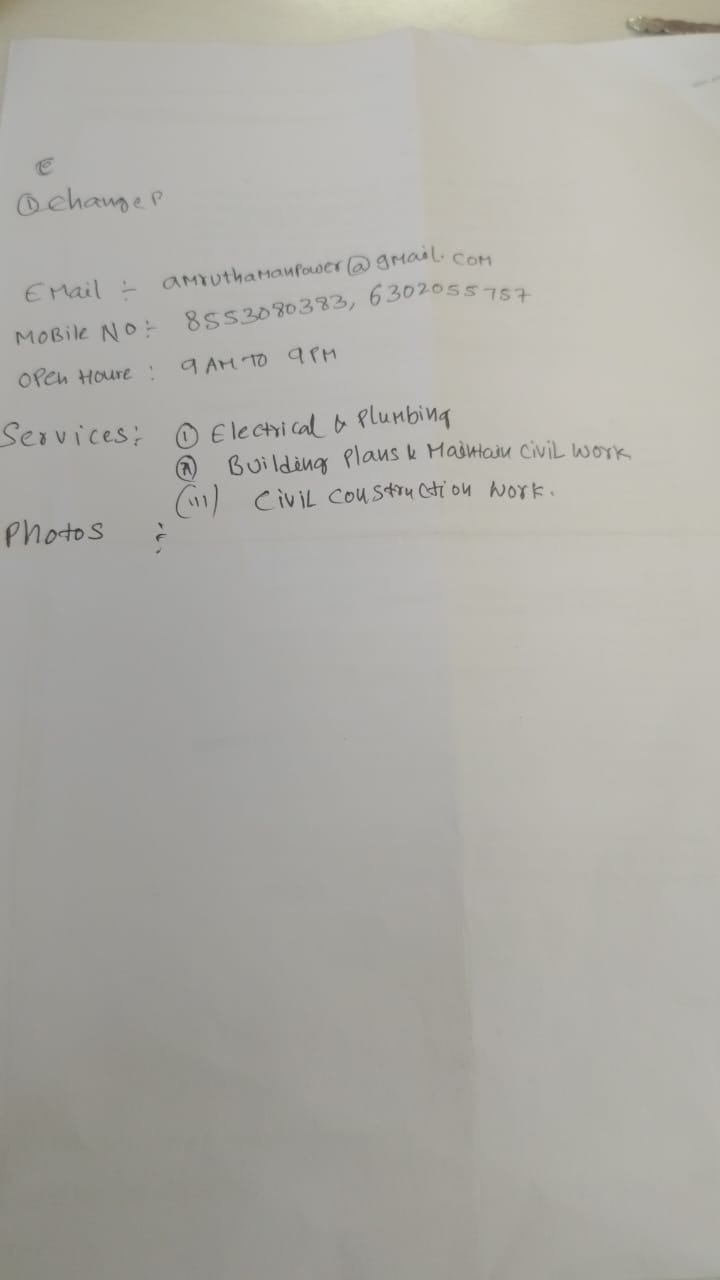 E
① Change P
EMail :- amruthamanpower@gmail.com
MOBile NO :- 8553080383, 6302055757
OPen Houre : 9 AM TO 9 PM
Services : ① Electrical & Plumbing
② Building Plans & Maintain Civil Work
(iii) Civil Construction Work.
Photos :